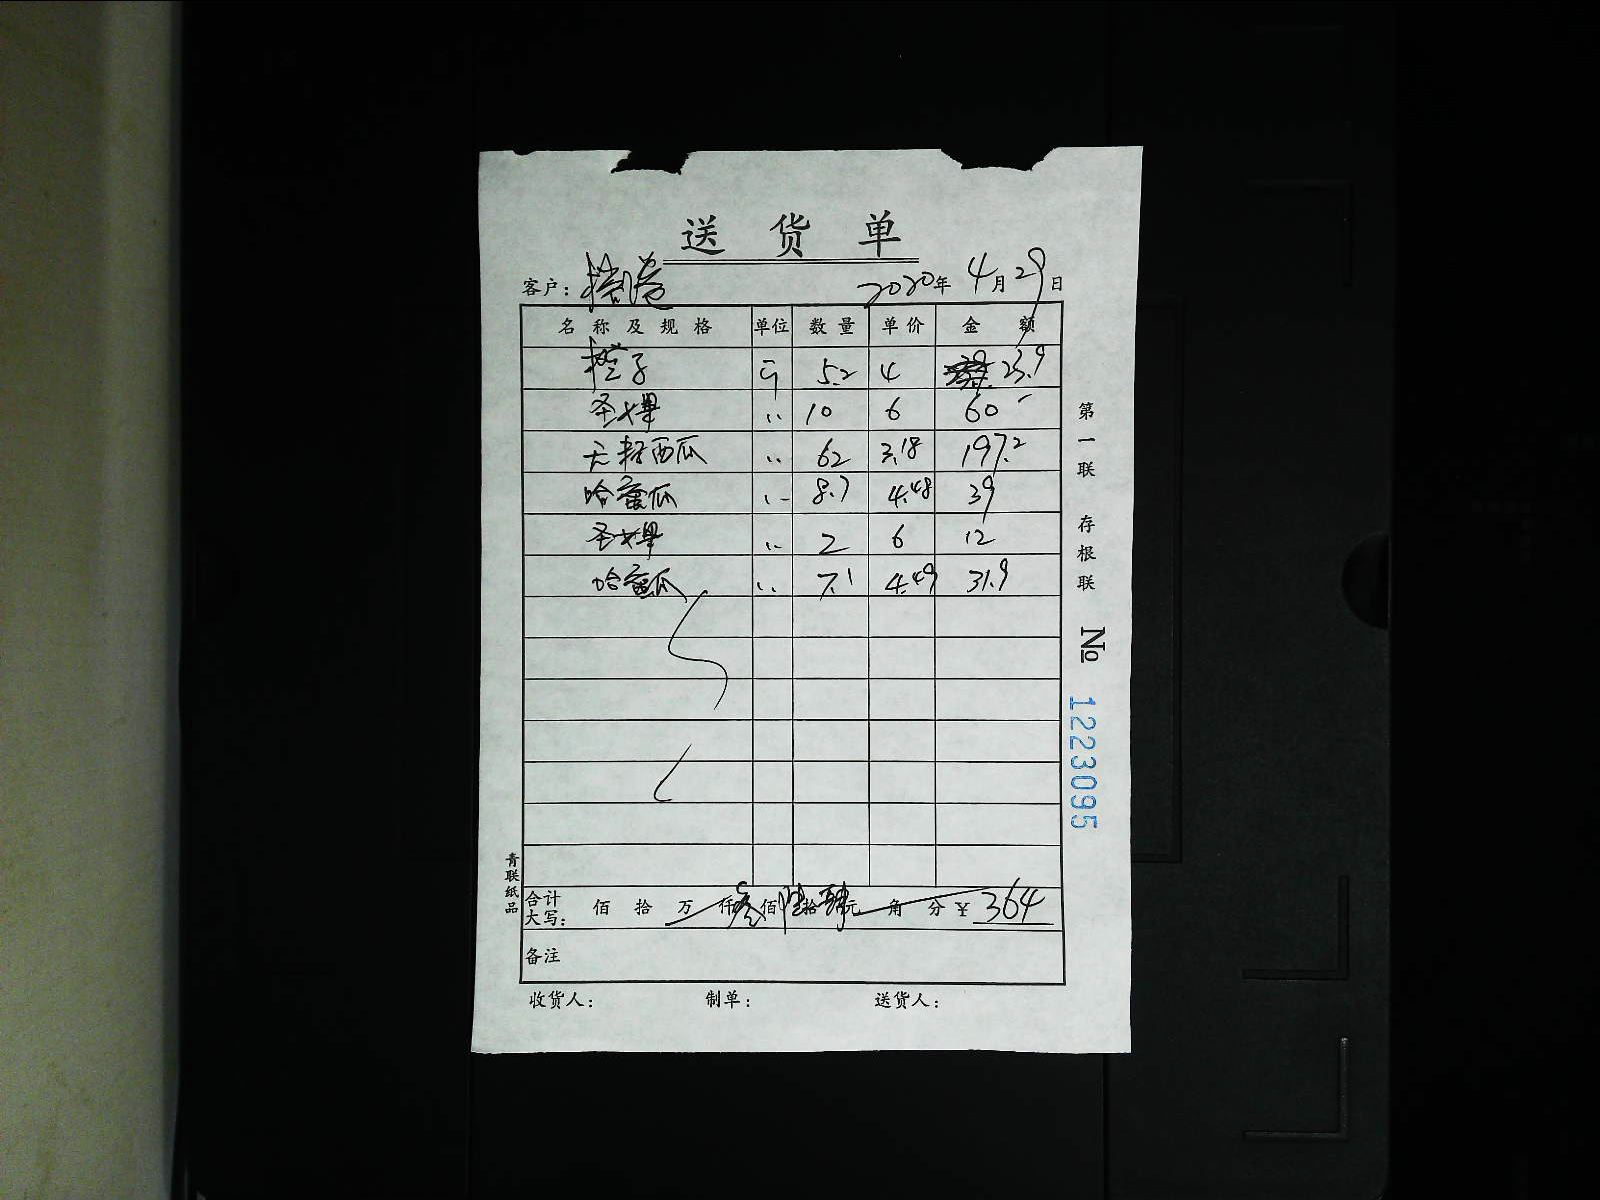 送货单
客户： 2020年4月29日
名称及规格 单位 数量 单价 金额
橙子 斤 5.2 4 23.9
圣女果 〃 10 6 60
无籽西瓜 〃 62 3.18 197.2
哈蜜瓜 〃 8.7 4.48 39
圣女果 〃 2 6 12
哈蜜瓜 〃 7.1 4.49 31.9
合计大写： 佰 拾 万 仟 叁佰 陆拾 肆元 角 分 ¥ 364
备注
收货人： 制单： 送货人：
第一联 存根联
№ 1223095
青联纸品